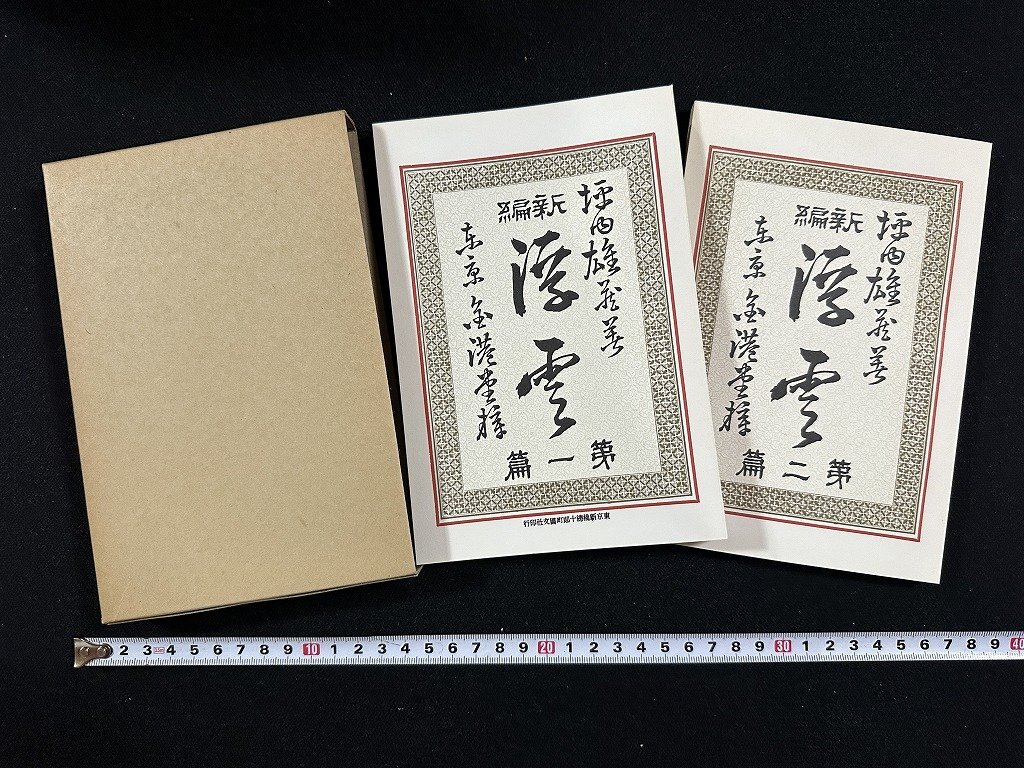 坪内雄蔵著
新編
浮雲
東京 金港堂梓
第一篇
坪内雄蔵著
新編
浮雲
東京 金港堂梓
第二篇
2 3 4 5 6 7 8 9 10 1 2 3 4 5 6 7 8 9 20 1 2 3 4 5 6 7 8 9 30 1 2 3 4 5 6 7 8 9 40